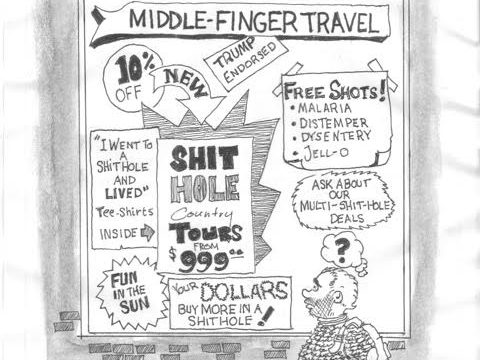 MIDDLE-FINGER TRAVEL
10%
OFF
NEW
TRUMP
ENDORSED
FREE SHOTS!
• MALARIA
• DISTEMPER
• DYSENTERY
• JELL-O
"I WENT TO
A
SHITHOLE
AND
LIVED"
Tee-Shirts
INSIDE
SHIT
HOLE
Country
TOURS
FROM
$999.00
ASK ABOUT
OUR
MULTI-SHIT-HOLE
DEALS
?
FUN
IN THE
SUN
YOUR DOLLARS
BUY MORE IN A
SHITHOLE!